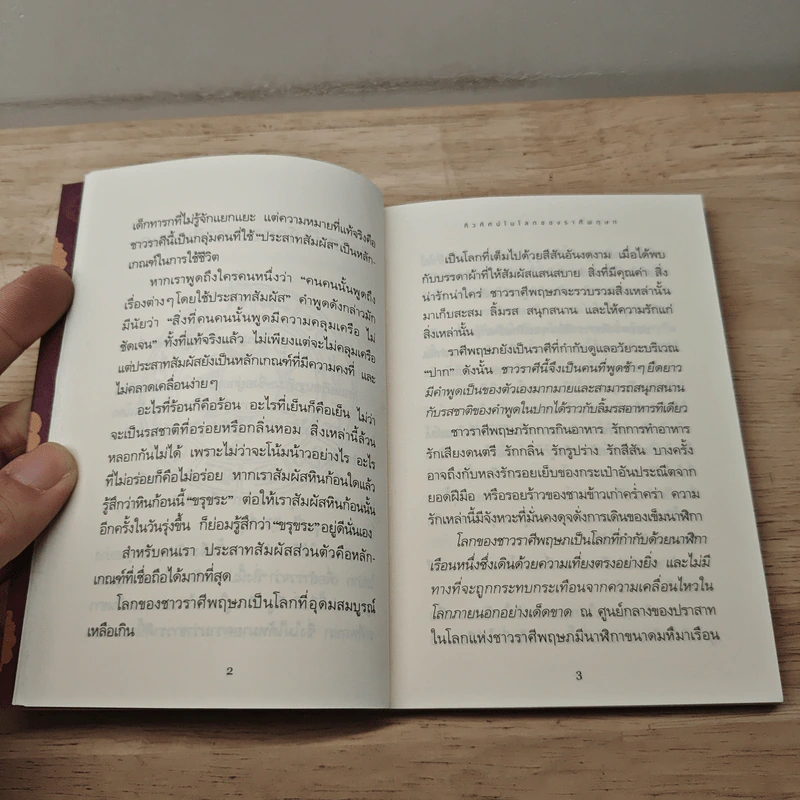 เด็กทารกที่ไม่รู้จักแยกแยะ แต่ความหมายที่แท้จริงคือ
ชาวราศีนี้เป็นกลุ่มคนที่ใช้ “ประสาทสัมผัส” เป็นหลัก-
เกณฑ์ในการใช้ชีวิต
หากเราพูดถึงใครคนหนึ่งว่า “คนคนนั้นพูดถึง
เรื่องต่างๆ โดยใช้ประสาทสัมผัส” คำพูดดังกล่าวมัก
มีนัยว่า “สิ่งที่คนคนนั้นพูดมีความคลุมเครือ ไม่
ชัดเจน” ทั้งที่แท้จริงแล้ว ไม่เพียงแต่จะไม่คลุมเครือ
แต่ประสาทสัมผัสยังเป็นหลักเกณฑ์ที่มีความคงที่ และ
ไม่คลาดเคลื่อนง่ายๆ
อะไรที่ร้อนก็คือร้อน อะไรที่เย็นก็คือเย็น ไม่ว่า
จะเป็นรสชาติที่อร่อยหรือกลิ่นหอม สิ่งเหล่านี้ล้วน
หลอกกันไม่ได้ เพราะไม่ว่าจะโน้มน้าวอย่างไร อะไร
ที่ไม่อร่อยก็คือไม่อร่อย หากเราสัมผัสหินก้อนใดแล้ว
รู้สึกว่าหินก้อนนี้ “ขรุขระ” ต่อให้เราสัมผัสหินก้อนนั้น
อีกครั้งในวันรุ่งขึ้น ก็ย่อมรู้สึกว่า “ขรุขระ” อยู่ดีนั่นเอง
สำหรับคนเรา ประสาทสัมผัสส่วนตัวคือหลัก-
เกณฑ์ที่เชื่อถือได้มากที่สุด
โลกของชาวราศีพฤษภเป็นโลกที่อุดมสมบูรณ์
เหลือเกิน
2
ทิวทัศน์ในโลกของราศีพฤษภ
เป็นโลกที่เต็มไปด้วยสีสันอันงดงาม เมื่อได้พบ
กับบรรดาผ้าที่ให้สัมผัสแสนสบาย สิ่งที่มีคุณค่า สิ่ง
น่ารักน่าใคร่ ชาวราศีพฤษภจะรวบรวมสิ่งเหล่านั้น
มาเก็บสะสม ลิ้มรส สนุกสนาน และให้ความรักแก่
สิ่งเหล่านั้น
ราศีพฤษภยังเป็นราศีที่กำกับดูแลอวัยวะบริเวณ
“ปาก” ดังนั้น ชาวราศีนี้จึงเป็นคนที่พูดช้าๆ ยืดยาว
มีคำพูดเป็นของตัวเองมากมายและสามารถสนุกสนาน
กับรสชาติของคำพูดในปากได้ราวกับลิ้มรสอาหารทีเดียว
ชาวราศีพฤษภรักการกินอาหาร รักการทำอาหาร
รักเสียงดนตรี รักกลิ่น รักรูปร่าง รักสีสัน บางครั้ง
อาจถึงกับหลงรักรอยเย็บของกระเป๋าอันประณีตจาก
ยอดฝีมือ หรือรอยร้าวของชามข้าวเก่าคร่ำคร่า ความ
รักเหล่านี้มีจังหวะที่มั่นคงดุจดั่งการเดินของเข็มนาฬิกา
โลกของชาวราศีพฤษภเป็นโลกที่กำกับด้วยนาฬิกา
เรือนหนึ่งซึ่งเดินด้วยความเที่ยงตรงอย่างยิ่ง และไม่มี
ทางที่จะถูกกระทบกระเทือนจากความเคลื่อนไหวใน
โลกภายนอกอย่างเด็ดขาด ณ ศูนย์กลางของปราสาท
ในโลกแห่งชาวราศีพฤษภมีนาฬิกาขนาดมหึมาเรือน
3